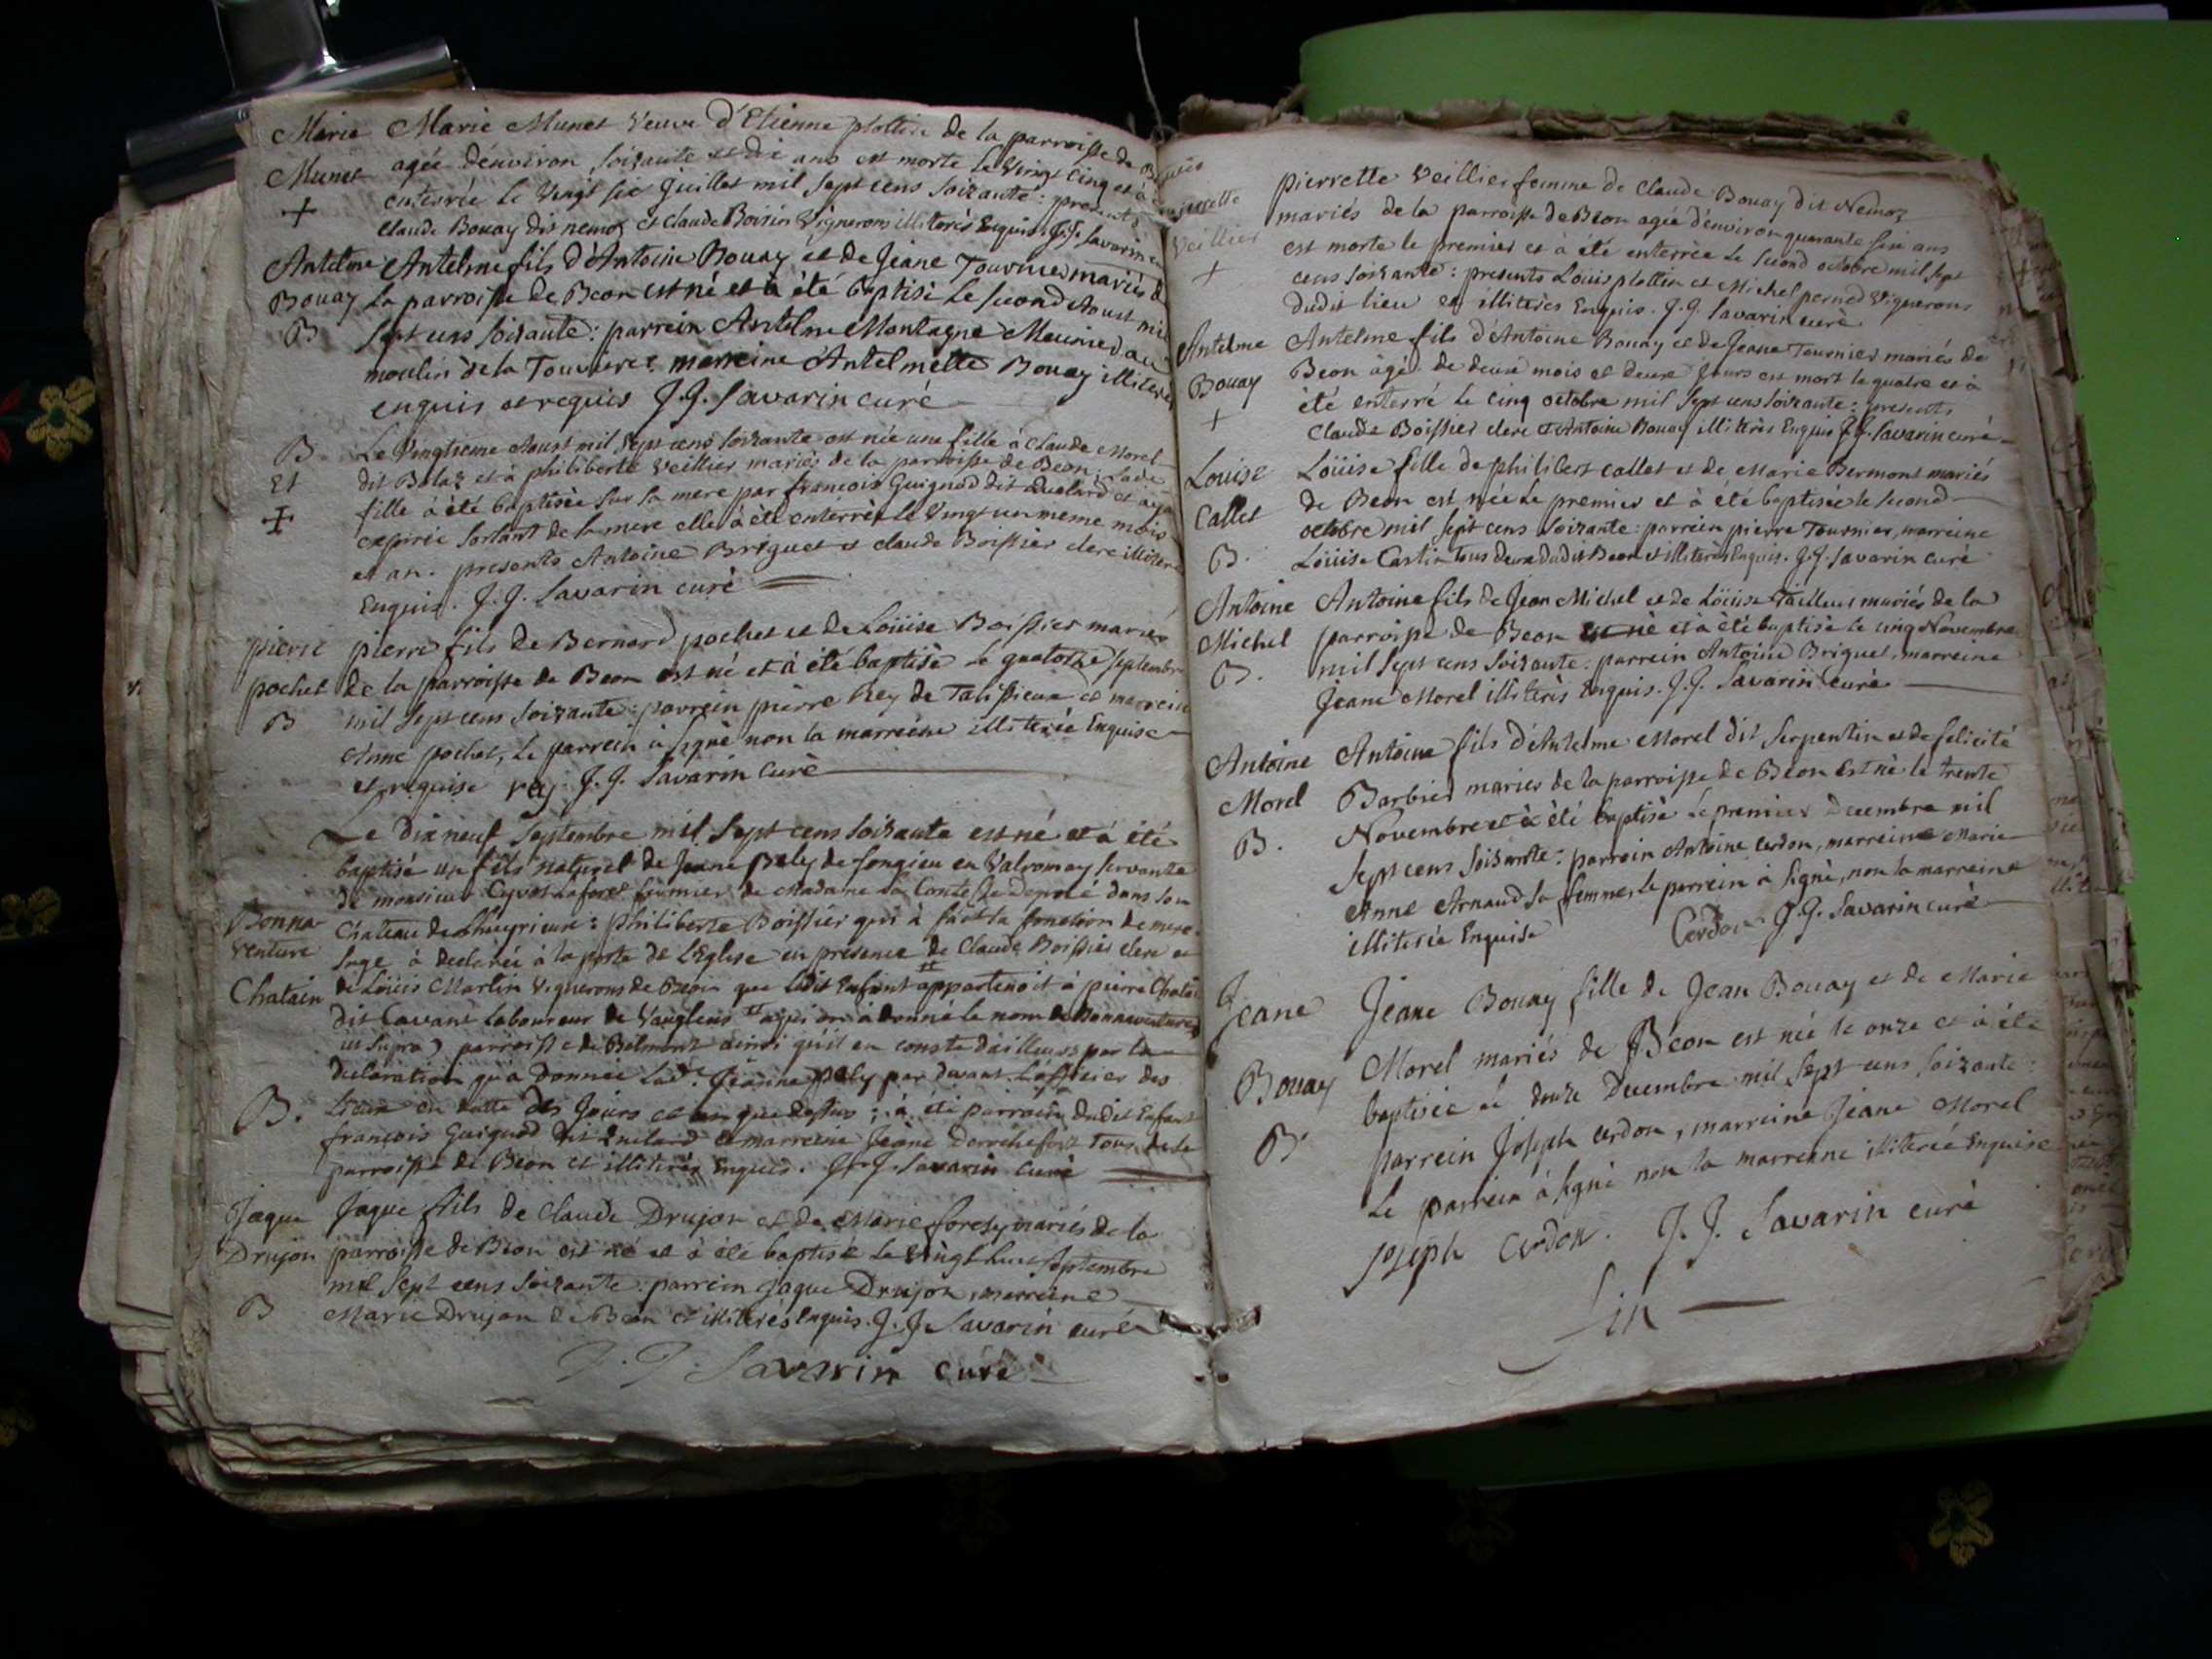 Marie Marie Munet Veuve d'Etienne plottin de la parroisse de
Munet agée d'environ soixante et di ans est morte le vingt cinq et à
+ enterrée le vingt six Juillet mil sept cens soixante : presents
claude Bouay dit nemoz et claude Boisin Vignerons illiterés Enquis J.J. Savarin
Antelme Antelme fils d'Antoine Bouay et de Jeane Tournier mariés d
Bouay la parroisse de Beon est né et à été baptisé le second Aoust mi
B sept cens soixante : parrein Antelme Montagne Meunier au
moulin de la Touviere marreine Antelmette Bouay illiteres
enquis et requis J.J. Savarin curé
B Le Vingtieme Aoust mil sept cens soixante est née une fille à claude Morel
Et dit Balaz et à philiberte Veillier mariés de la parroisse de Beon : Lade
+ fille à été baptisée sur la mere par francois Guignod dit Quelard et aya
expirée sortant de la mere elle à été enterrée le Vingt un meme mois
et an. presents Antoine Briguet et claude Boissier clerc illiteres
Enquis. J.J. Savarin curé
pierre pierre fils de Bernard pochet et de Loüise Boissier mariés
pochet de la parroisse de Beon est né et à été baptisé le quatorze septembre
B mil sept cens soixante : parrein pierre Rey de Talissieux et marreine
Anne pochet, le parrein à signé non la marreine illiterée Enquise
et requise rey J.J. Savarin Curé
Le dix neuf septembre mil sept cens soixante est né et à été
baptisé un fils naturel de Jeane pely de songieu en Valromay servante
de monsieur Cyvot Laforet fermier de Madame La Comtesse dans son
Bonna Chateau de Lhuyrieux : Philiberte Boissier qui à fait la fonction de mere
venture sage à declarée à la porte de L'Eglise en presence de Claude Boissier clerc et
Chatain de Loüis Martin Vignerons de Beon que ledit Enfant appartenoit à pierre Chatai
dit Cavant laboureur de Vaugleins aqui on à donné le nom de Bonnaventure
ut supra) parroisse de Belmont ainsi qu'il en conste d'ailleurs par la
declaration qu'a donnée Lade Jeanne pely par devant L'officier des
B. Lieux en datte des Jours et an que dessus ; à été parrein dudit Enfant
françois Guignod dit Quelard et marreine Jeane Derochefort tous de la
parroisse de Beon et illiterés Enquis. J.J. Savarin Curé
Jaque Jaque fils de Claude Drujon et de Marie forest mariés de la
Drujon parroisse de Beon est né et à été baptisé le Vingt huit septembre
mil sept cens soixante : parrein Jaque Drujon, marreine
B Marie Drujon de Beon et illiterés Enquis. J.J. Savarin curé
J.J. Savarin curé
pierrette Veillier femme de Claude Bouay dit Nemoz
Veillier mariés de la parroisse de Beon agée d'environ quarante six ans
+ est morte le premier et à été enterrée le second octobre mil sept
cens soixante : presents Loüis plottin et Michel perned Vignerons
dudit lieu et illiteres Enquis. J.J. Savarin curé
Antelme Antelme fils d'Antoine Bouay et de Jeane Tournier mariés de
Bouay Beon agé de deux mois et deux jours est mort le quatre et à
+ été enterré le cinq octobre mil sept cens soixante : presents
Claude Boissier clerc et Antoine Bouay illiterés Enquis J.J. Savarin curé
Louise Loüise fille de philibert callet et de Marie Bermont mariés
Callet de Beon est née le premier et à été baptisée le second
octobre mil sept cens soixante : parrein pierre Tournier, marreine
B. Loüise Castin tous deux dudit Beon et illiterés Enquis. J.J. Savarin curé
Antoine Antoine fils de Jean Michel et de Loüise Tailleur mariés de la
Michel parroisse de Beon est né et à été baptisé le cinq Novembre
B. mil sept cens soixante : parrein Antoine Briguet, marreine
Jeane Morel illiterés Enquis. J.J. Savarin curé
Antoine Antoine fils d'Antelme Morel dit serpentin et de felicité
Morel Barbier mariés de la parroisse de Béon est né le trente
B. Novembre et à été baptisé le premier Decembre mil
sept cens soixante : parrein Antoine cerdon, marreine Marie
Anne Arnaud sa femme, le parrein à signé, non la marreine
illiterée Enquise Cerdon J.J. Savarin curé
Jeane Jeane Bouay fille de Jean Bouay et de Marie
Bouay Morel mariés de Béon est née le onze et à été
B. baptisée le douze Decembre mil sept cens soixante :
parrein Joseph cerdon, marreine Jeane Morel
Le parrein à signé non la marreine illiterée Enquise
Joseph Cerdon. J.J. Savarin curé
Fin